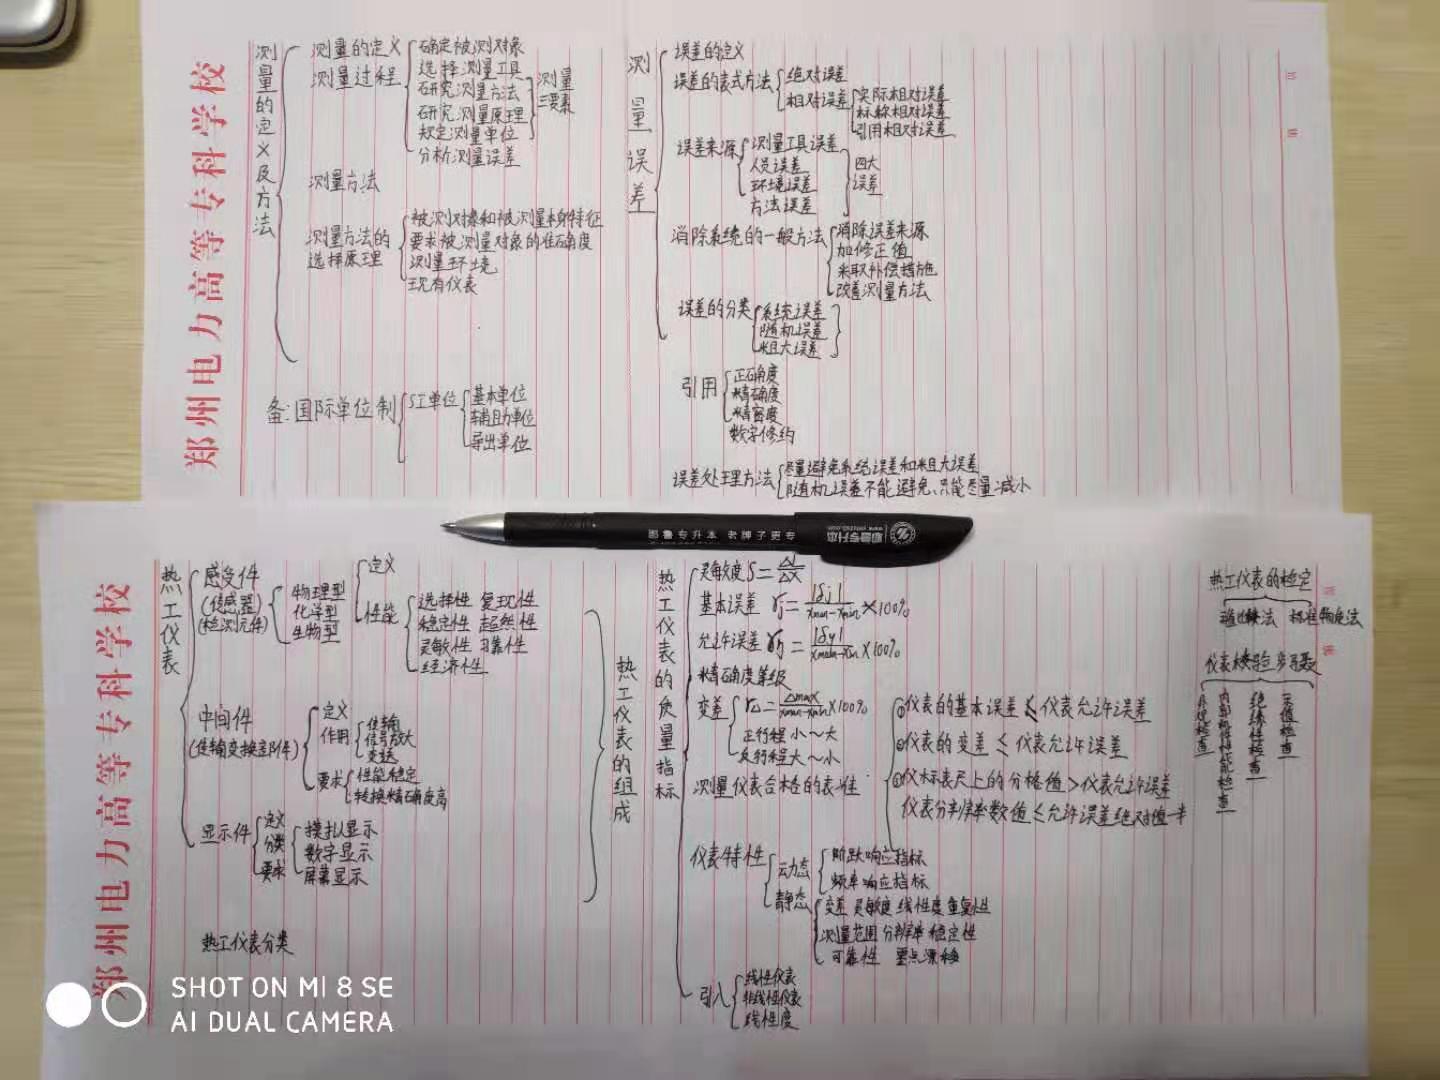 郑州电力高等专科学校
测量的定义及方法
测量的定义
测量过程
确定被测对象
选择测量工具
研究测量方法
研究测量原理
规定测量单位
分析测量误差
测量
三要素
测量方法
测量方法的
选择原理
被测对象和被测量本身特征
要求被测量对象的准确度
测量环境
现有仪表
备:国际单位制
SI单位
基本单位
辅助单位
导出单位
测量误差
误差的定义
误差的表式方法
绝对误差
相对误差
实际相对误差
标称相对误差
引用相对误差
误差来源
测量工具误差
人员误差
环境误差
方法误差
四大
误差
消除系统的一般方法
消除误差来源
加修正值
采取补偿措施
改善测量方法
误差的分类
系统误差
随机误差
粗大误差
引用
正确度
精确度
精密度
数字修约
误差处理方法
尽量避免系统误差和粗大误差
随机误差不能避免、只能尽量减小
郑州电力高等专科学校
热工仪表
感受件
(传感器)
(检测元件)
物理型
化学型
生物型
定义
性能
选择性 复现性
稳定性 超然性
灵敏性 可靠性
经济性
中间件
(传输变换部件)
定义
作用
传输
信号放大
变送
要求
性能稳定
转换精确度高
显示件
定义
分类
要求
模拟显示
数字显示
屏幕显示
热工仪表分类
热工仪表的组成
热工仪表的质量指标
灵敏度S=Δl/Δx
基本误差 γj=|δj|/xmax-xmin×100%
允许误差 γy=|δy|/xmax-xmin×100%
精确度等级
变差
γΔ=Δmax/xmax-xmin×100%
正行程 小~大
反行程大~小
测量仪表合格的表准
①仪表的基本误差≤仪表允许误差
②仪表的变差≤仪表允许误差
③仪标表尺上的分格值>仪表允许误差
仪表分辨率数值≤允许误差绝对值一半
仪表特性
动态
阶跃响应指标
频率响应指标
静态
变差 灵敏度 线性度 重复性
测量范围 分辨率 稳定性
可靠性 零点漂移
引入
线性仪表
非线性仪表
线性度
热工仪表的检定
标准物质法
仪表校验步骤
外观检查
内部机件性能检查
绝缘性检查
示值检查
圆鲁专升本 老牌子更专
SHOT ON MI 8 SE
AI DUAL CAMERA